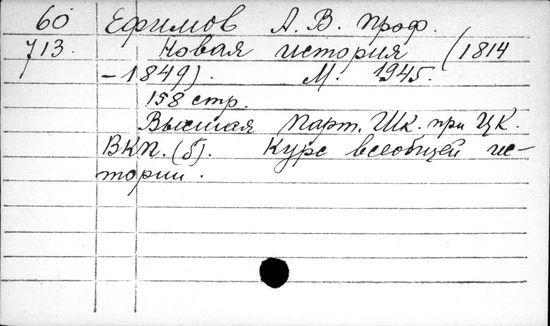 60 Ефимов А. В. проф.
713. Новая история (1814
–1849). М. 1945.
158 стр.
Высшая Парт. Шк. при ЦК.
ВКП. (б). Курс всеобщей ис-
тории.